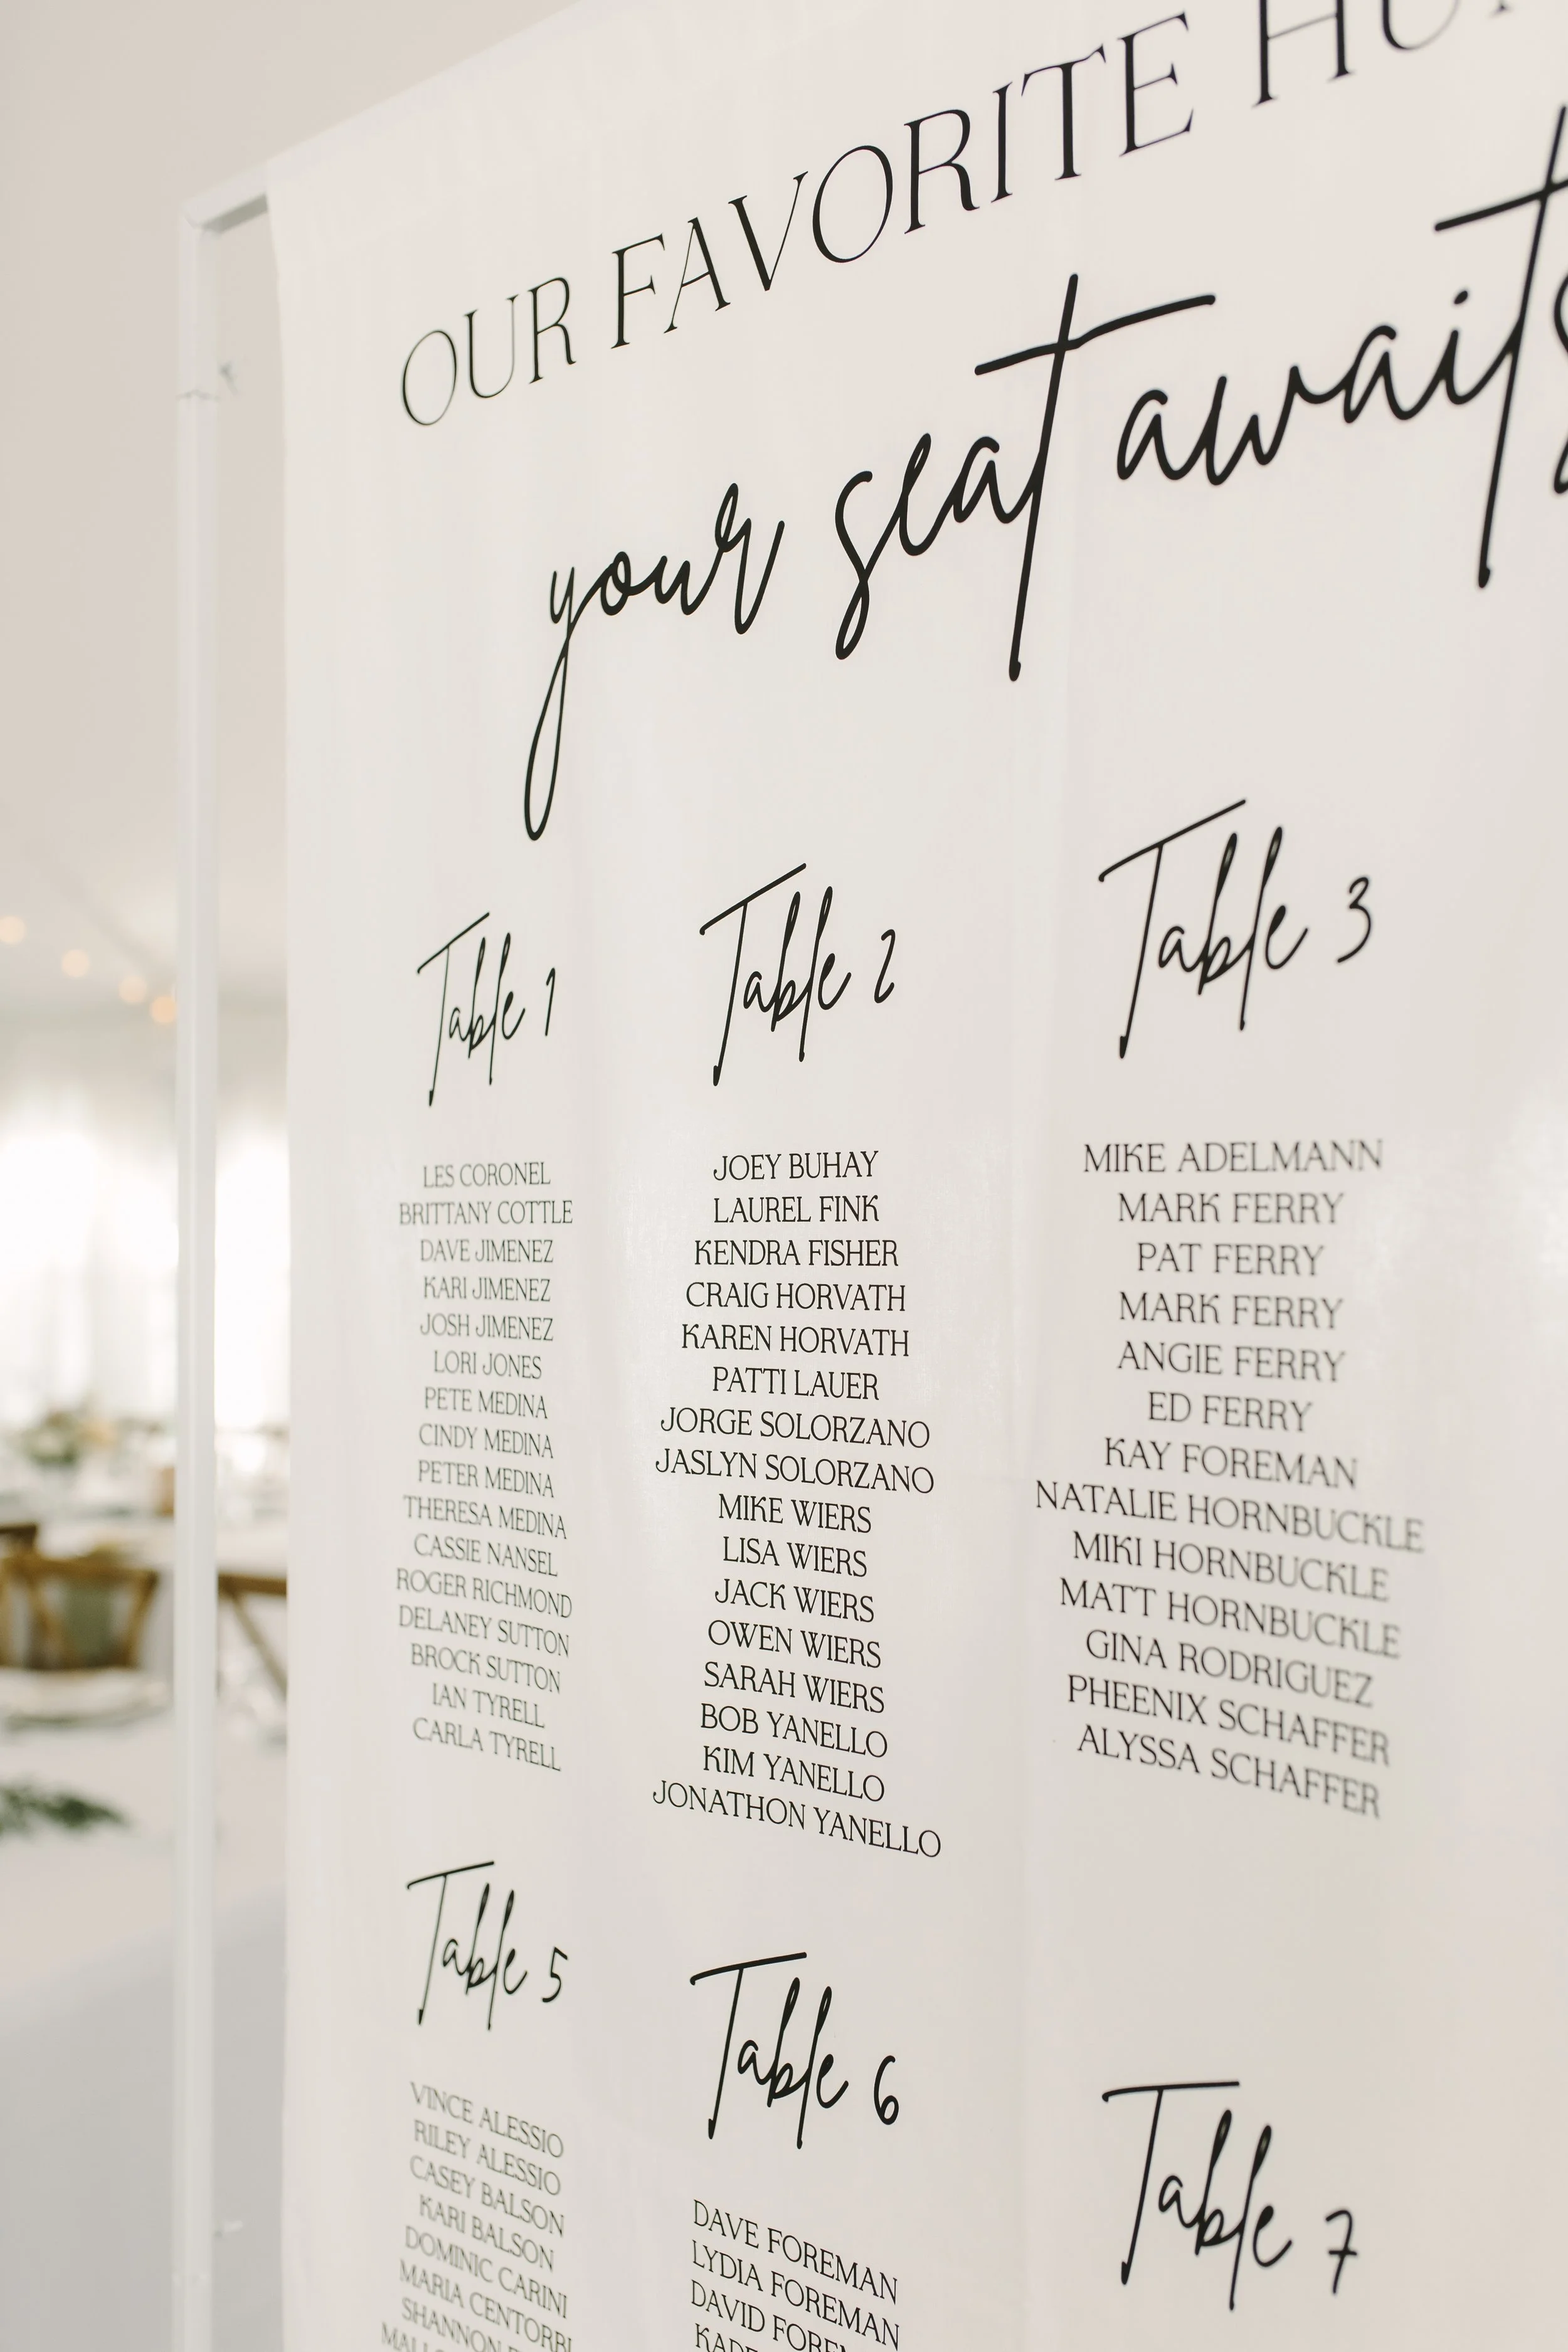 OUR FAVORITE
your seat awaits
Table 1
LES CORONEL
BRITTANY COTTLE
DAVE JIMENEZ
KARI JIMENEZ
JOSH JIMENEZ
LORI JONES
PETE MEDINA
CINDY MEDINA
PETER MEDINA
THERESA MEDINA
CASSIE NANSEL
ROGER RICHMOND
DELANEY SUTTON
BROCK SUTTON
IAN TYRELL
CARLA TYRELL
Table 2
JOEY BUHAY
LAUREL FINK
KENDRA FISHER
CRAIG HORVATH
KAREN HORVATH
PATTI LAUER
JORGE SOLORZANO
JASLYN SOLORZANO
MIKE WIERS
LISA WIERS
JACK WIERS
OWEN WIERS
SARAH WIERS
BOB YANELLO
KIM YANELLO
JONATHON YANELLO
Table 3
MIKE ADELMANN
MARK FERRY
PAT FERRY
MARK FERRY
ANGIE FERRY
ED FERRY
KAY FOREMAN
NATALIE HORNBUCKLE
MIKI HORNBUCKLE
MATT HORNBUCKLE
GINA RODRIGUEZ
PHEENIX SCHAFFER
ALYSSA SCHAFFER
Table 5
VINCE ALESSIO
RILEY ALESSIO
CASEY BALSON
KARI BALSON
DOMINIC CARINI
MARIA
SHANNON
Table 6
DAVE FOREMAN
LYDIA FOREMAN
DAVID
Table 7